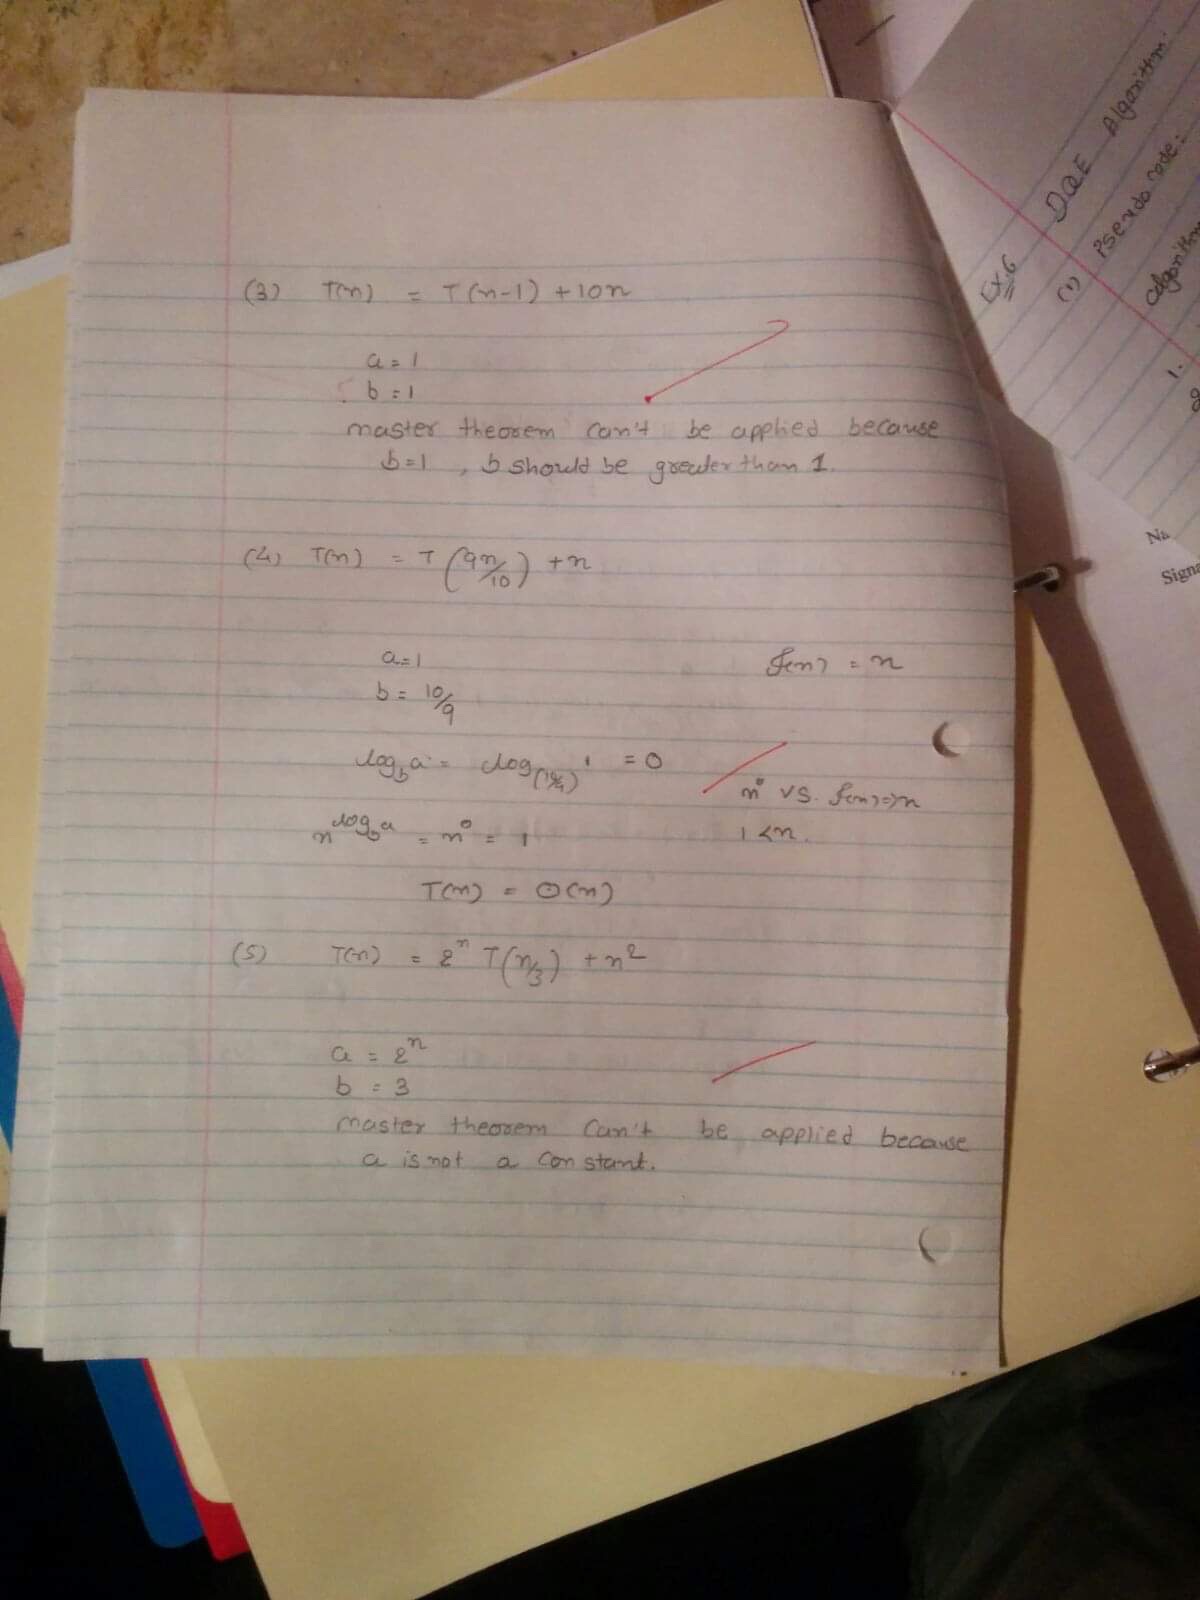 (3) T(n) = T(n-1) + 10n
a = 1
b = 1
master theorem can't be applied because
b=1 , b should be greater than 1.
(4) T(n) = T(9n/10) + n
a=1
f(n) = n
b = 10/9
log_b a = log_(10/9) 1 = 0
n^0 vs. f(n)=>n
n^log_b a = n^0 = 1
1 < n.
T(n) = Θ(n)
(5) T(n) = 2^n T(n/3) + n^2
a = 2^n
b = 3
master theorem can't be applied because
a is not a constant.
Ex.6 D&E Algorithm
(1) Pseudo code:
algorithm
1.
2
Na
Signa